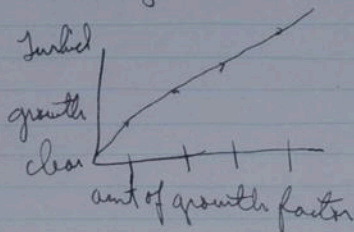 Turbid
growth
clear
amt of growth factor